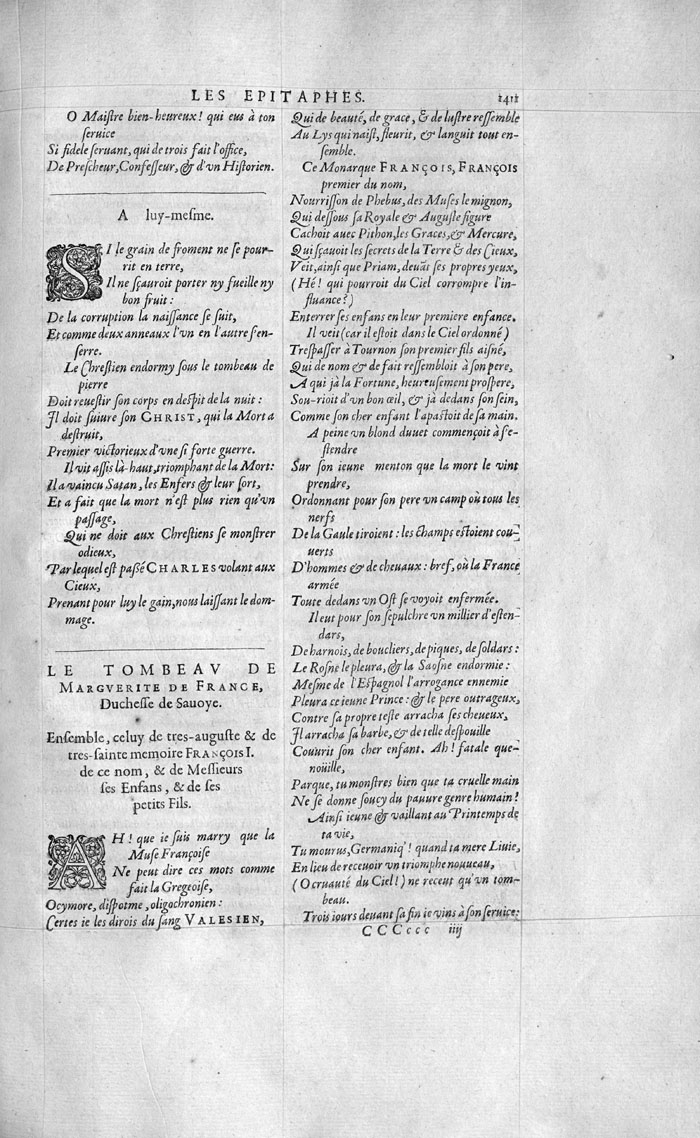 LES EPITAPHES. 1411
O Maistre bien-heureux! qui eus à ton
seruice
Si fidele seruant, qui de trois fait l'office,
De Prescheur, Confesseur, & d'vn Historien.
A luy-mesme.
SI le grain de froment ne se pour-
rit en terre,
Il ne sçauroit porter ny fueille ny
bon fruit:
De la corruption la naissance se suit,
Et comme deux anneaux l'vn en l'autre s'en-
serre.
Le Chrestien endormy sous le tombeau de
pierre
Doit reuestir son corps en despit de la nuit:
Il doit suiure son CHRIST, qui la Mort a
destruit,
Premier victorieux d'vne si forte guerre.
Il vit assis là-haut, triomphant de la Mort:
Il a vaincu Satan, les Enfers & leur fort,
Et a fait que la mort n'est plus rien qu'vn
passage,
Qui ne doit aux Chrestiens se monstrer
odieux,
Par lequel est passé CHARLES volant aux
Cieux,
Prenant pour luy le gain, nous laissant le dom-
mage.
LE TOMBEAV DE
MARGVERITE DE FRANCE,
Duchesse de Sauoye.
Ensemble, celuy de tres-auguste & de
tres-sainte memoire FRANÇOIS I.
de ce nom, & de Messieurs
ses Enfans, & de ses
petits Fils.
AH! que ie suis marry que la
Muse Françoise
Ne peut dire ces mots comme
fait la Gregeoise,
Ocymore, dispotme, oligochronien:
Certes ie les dirois du sang VALESIEN,
Qui de beauté, de grace, & de lustre ressemble
Au Lys qui naist, fleurit, & languit tout en-
semble.
Ce Monarque FRANÇOIS, FRANÇOIS
premier du nom,
Nourrisson de Phebus, des Muses le mignon,
Qui dessous sa Royale & Auguste figure
Cachoit auec Pithon, les Graces, & Mercure,
Qui sçauoit les secrets de la Terre & des Cieux,
Veit, ainsi que Priam, deuãt ses propres yeux,
(Hé! qui pourroit du Ciel corrompre l'in-
fluance?)
Enterrer ses enfans en leur premiere enfance.
Il veit (car il estoit dans le Ciel ordonné)
Trespasser à Tournon son premier fils aisné,
Qui de nom & de fait ressembloit à son pere,
A qui jà la Fortune, heureusement prospere,
Sou-rioit d'vn bon œil, & jà dedans son sein,
Comme son cher enfant l'apastoit de sa main.
A peine vn blond duuet commençoit à s'e-
stendre
Sur son ieune menton que la mort le vint
prendre,
Ordonnant pour son pere vn camp où tous les
nerfs
De la Gaule tiroient: les champs estoient cou-
uerts
D'hommes & de cheuaux: bref, où la France
armée
Toute dedans vn Ost se voyoit enfermée.
Il eut pour son sepulchre vn millier d'esten-
dars,
De harnois, de boucliers, de piques, de soldars:
Le Rosne le pleura, & la Saosne endormie:
Mesme de l'Espagnol l'arrogance ennemie
Pleura ce ieune Prince: & le pere outrageux,
Contre sa propre teste arracha ses cheueux,
Il arracha sa barbe, & de telle despouille
Couurit son cher enfant. Ah! fatale que-
noüille,
Parque, tu monstres bien que ta cruelle main
Ne se donne soucy du pauure genre humain!
Ainsi ieune & vaillant au Printemps de
ta vie,
Tu mourus, Germaniq'! quand ta mere Liuie,
En lieu de receuoir vn triomphe nouueau,
(O cruauté du Ciel!) ne receut qu'vn tom-
beau.
Trois iours deuant sa fin ie vins à son seruice:
CCCccc iiij